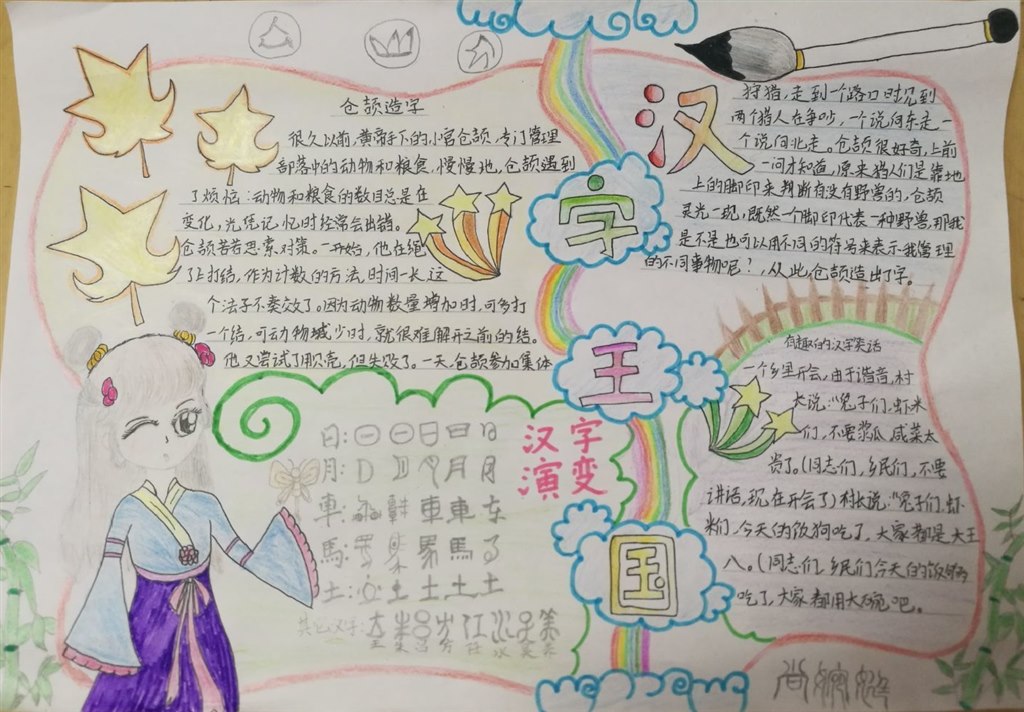 汉
字
王
国
仓颉造字
很久以前,黄帝手下的小官仓颉,专门管理
部落中的动物和粮食,慢慢地,仓颉遇到
了烦恼:动物和粮食的数目总是在
变化,光凭记忆时经常会出错。
仓颉苦苦思索对策。一开始,他在绳
了上打结,作为计数的方法,时间一长,这
个法子不奏效了。因为动物数量增加时,可多打
一个结,可动物减少时,就很难解开之前的结。
他又尝试了用贝壳,但失败了。一天,仓颉参加集体
狩猎,走到一个路口时,见到
两个猎人在争吵,一个说向东走,一
个说向北走。仓颉很好奇,上前
一问才知道,原来猎人们是靠地
上的脚印来判断有没有野兽的,仓颉
灵光一现,既然一个脚印代表一种野兽,那我
是不是也可以用不同的符号来表示我管理
的不同事物呢?,从此,仓颉造出了字。
汉字
演变
日:
月:
車:
馬:
土:
其它汉字:
有趣的汉字笑话
一个乡里开会,由于谐音,村
长说:“兔子们,虾米
们,不要浆瓜,咸菜太
贵了。(同志们,乡民们,不要
讲话,现在开会了)村长说:“兔子们,虾
米们,今天的饭狗吃了,大家都是大王
八。(同志们,乡民们今天的饭够
吃了,大家都用大碗吧。